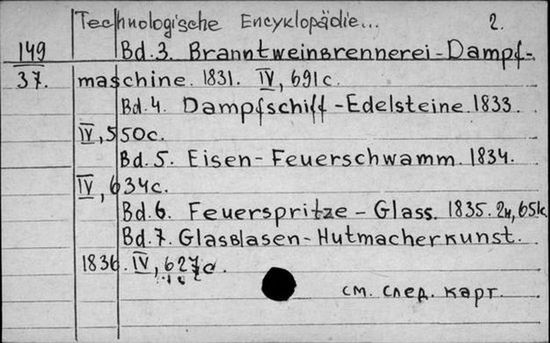 Technologische Encyklopädie... 2.
149 Bd. 3. Branntweinbrennerei-Dampf-
37. maschine. 1831. IV, 691 c.
Bd. 4. Dampfschiff-Edelsteine. 1833.
IV, 550c.
Bd. 5. Eisen-Feuerschwamm. 1834.
IV, 634c.
Bd. 6. Feuerspritze - Glass. 1835. 2н, 651c.
Bd. 7. Glasblasen-Hutmacherkunst.
1836. IV, 627c.
см. след. карт.